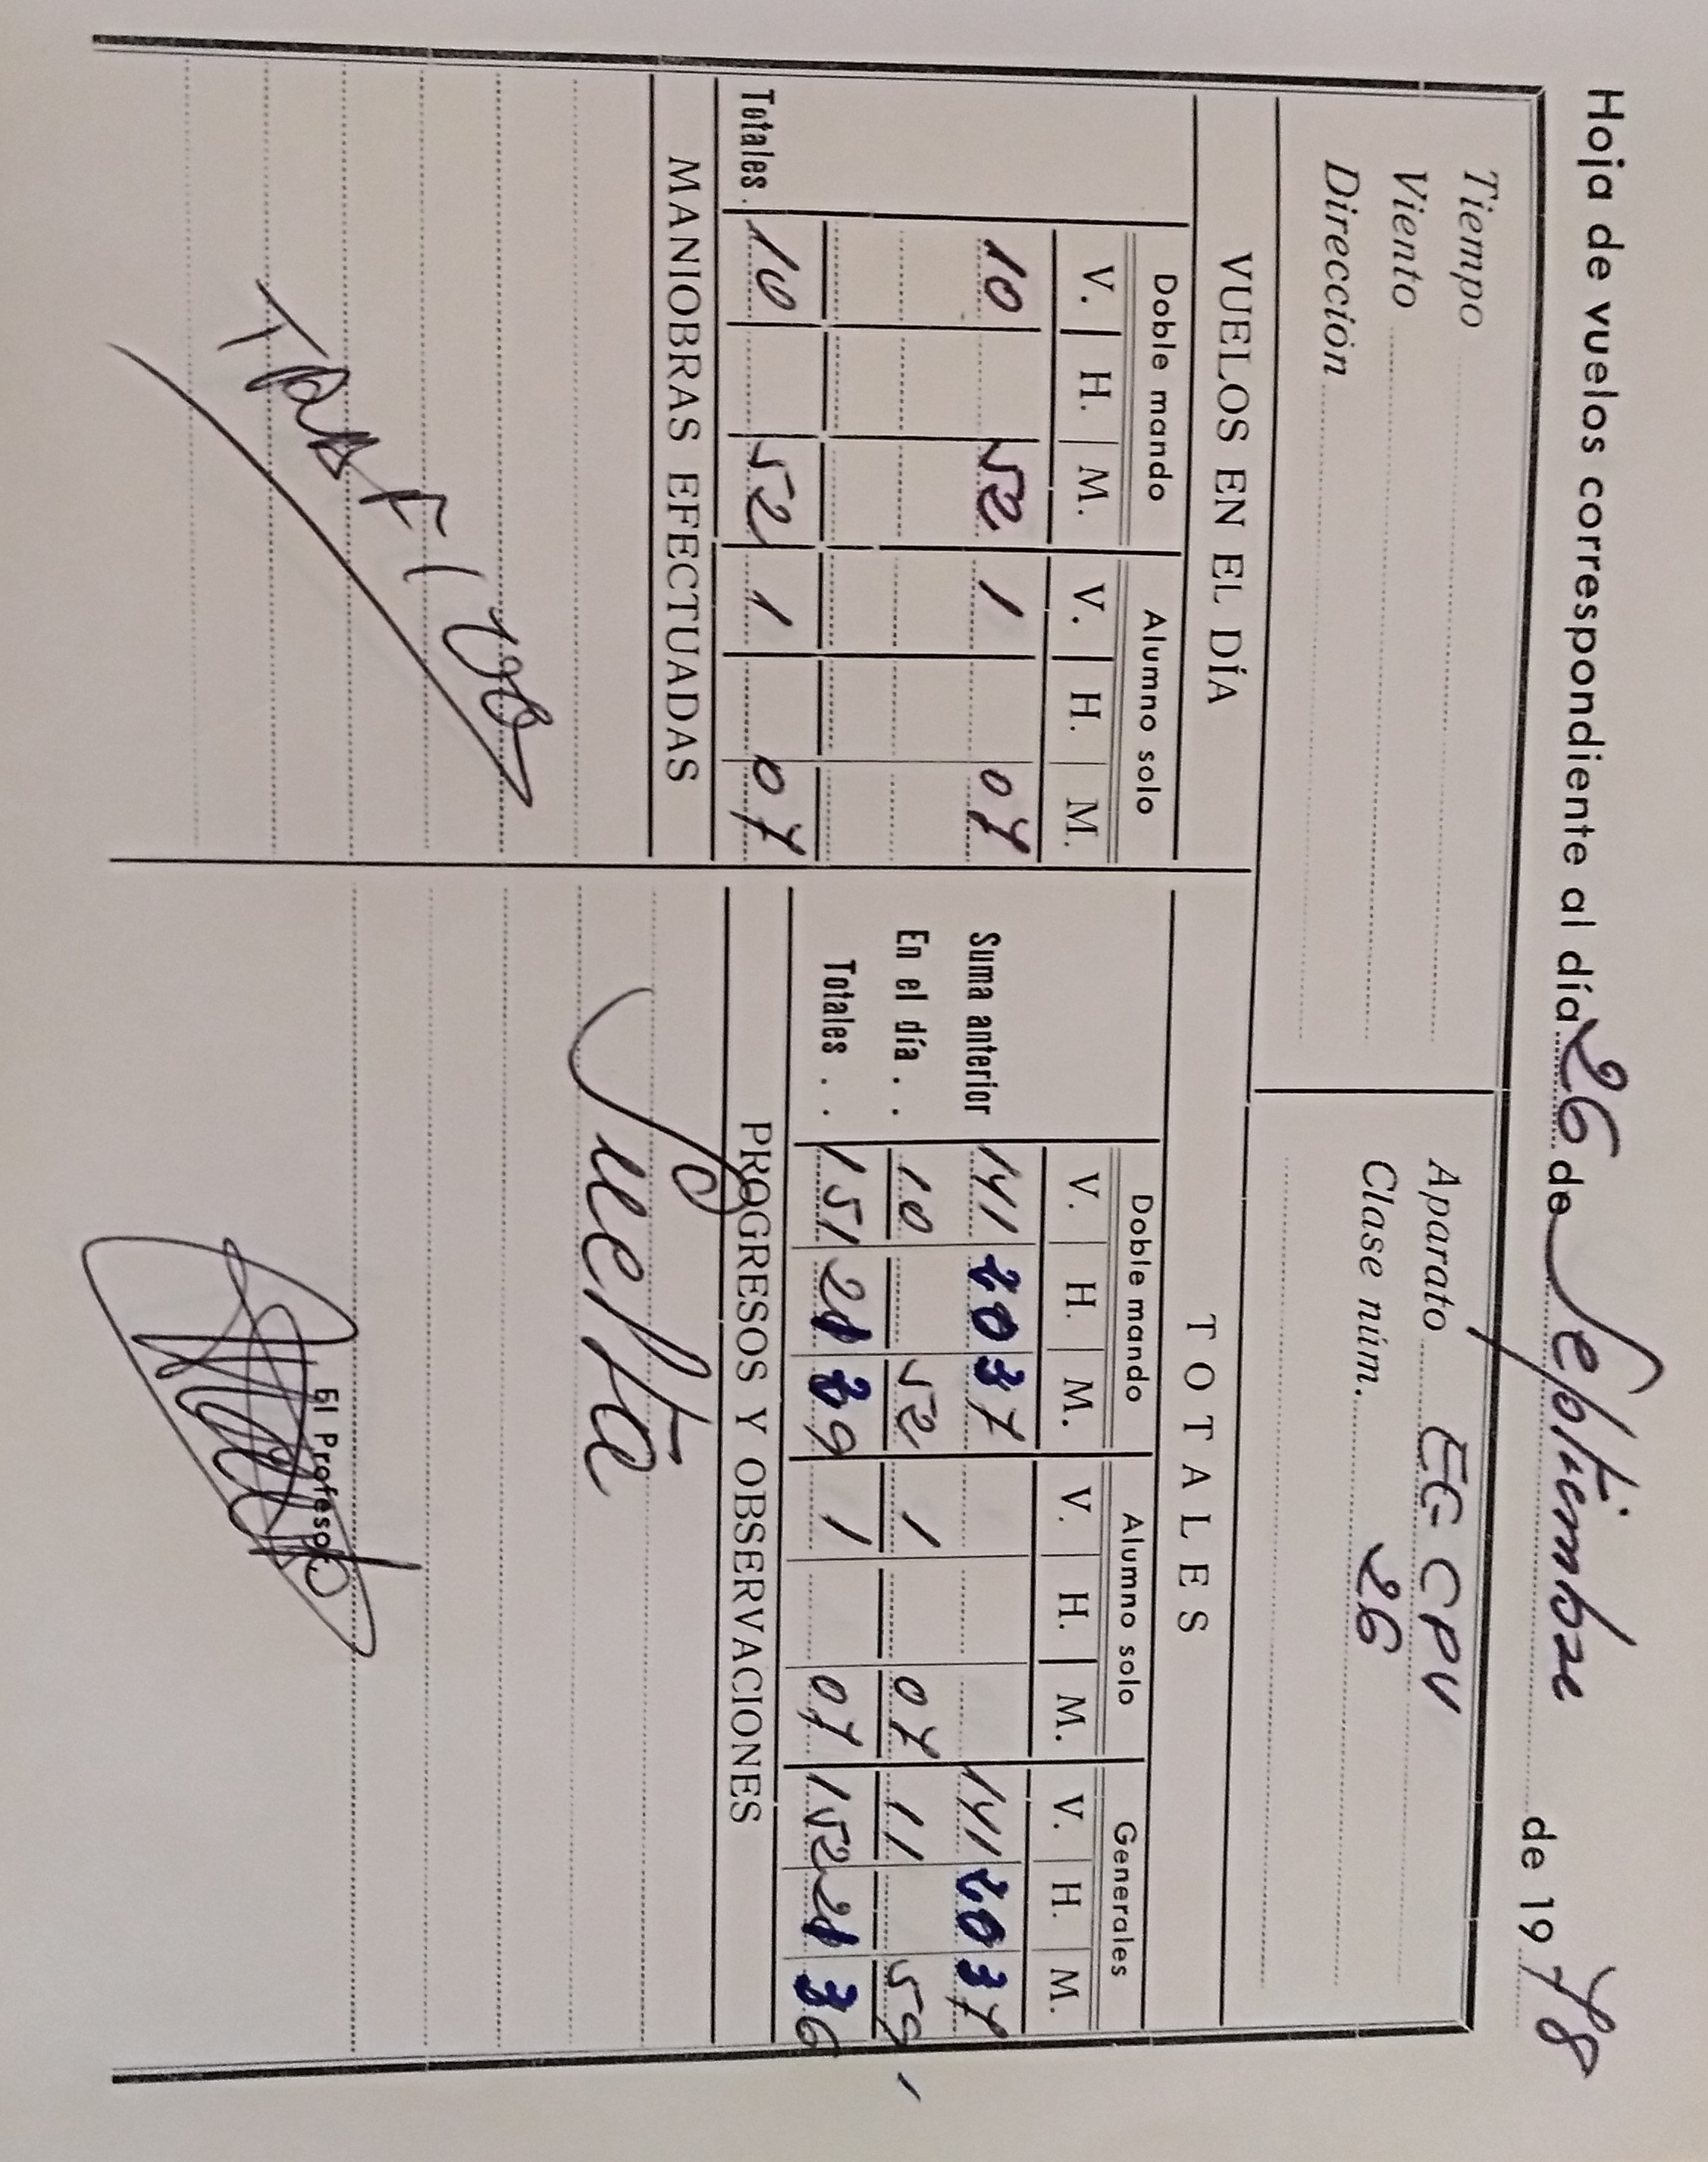 Hoja de vuelos correspondiente al día 26 de Septiembre de 1978
Tiempo
Viento
Dirección
Aparato EC CPV
Clase núm. 26
VUELOS EN EL DÍA
Doble mando Alumno solo
V. H. M. V. H. M.
10 52 1 07
Totales. 10 52 1 07
MANIOBRAS EFECTUADAS
TRAFICO
TOTALES
Doble mando Alumno solo Generales
V. H. M. V. H. M. V. H. M.
Suma anterior 141 20 37 141 20 37
En el día . . 10 52 1 07 11 59
Totales . . 151 21 29 1 07 152 21 36
PROGRESOS Y OBSERVACIONES
Suelta
El Profesor,